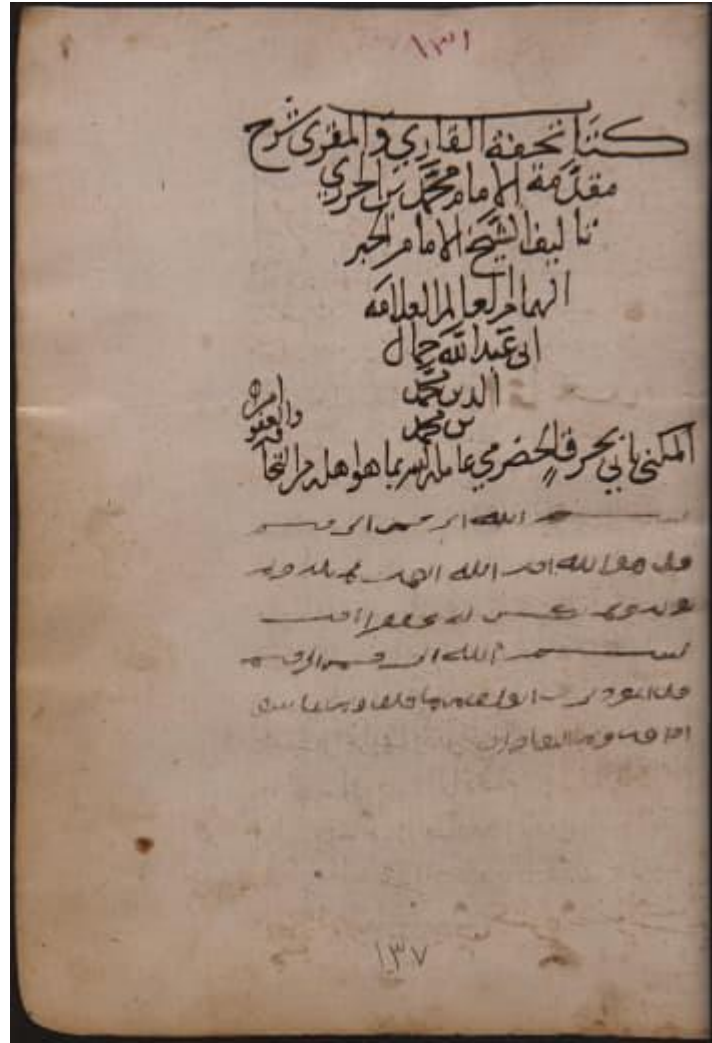 ١٣١
كتاب تحفة القاري والمقرئ شرح
مقدمة الامام محمد بن الجزري
تاليف الشيخ الامام الحبر
الهمام العالم العلامه
ابي عبد الله جمال
الدين محمد
بن محمد
المكنى بابي بحرق الحضرمي عامله الله بما هو اهله من النجا
والعفو
امين
بسم الله الرحمن الرحيم
قل هو الله احد الله الصمد لم يلد ولم
يولد ولم يكن له كفوا احد
بسم الله الرحمن الرحيم
قل اعوذ برب الفلق من ما خلق ومن غاسق
اذا وقب ومن
١٣٧